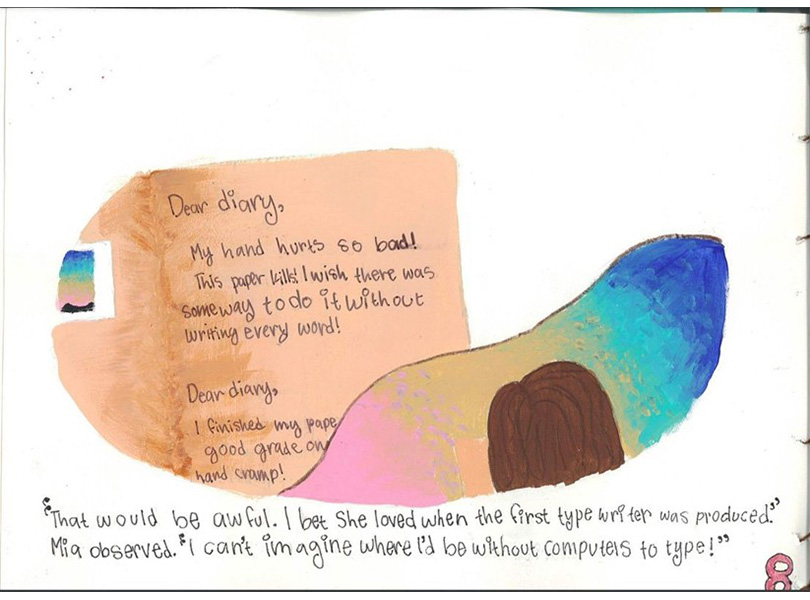 Dear diary,
My hand hurts so bad!
This paper kills! I wish there was
some way to do it without
writing every word!
Dear diary,
I finished my pape
good grade on
hand cramp!
"That would be awful. I bet She loved when the first type writer was produced."
Mia observed. "I can't imagine where I'd be without computers to type!"
8